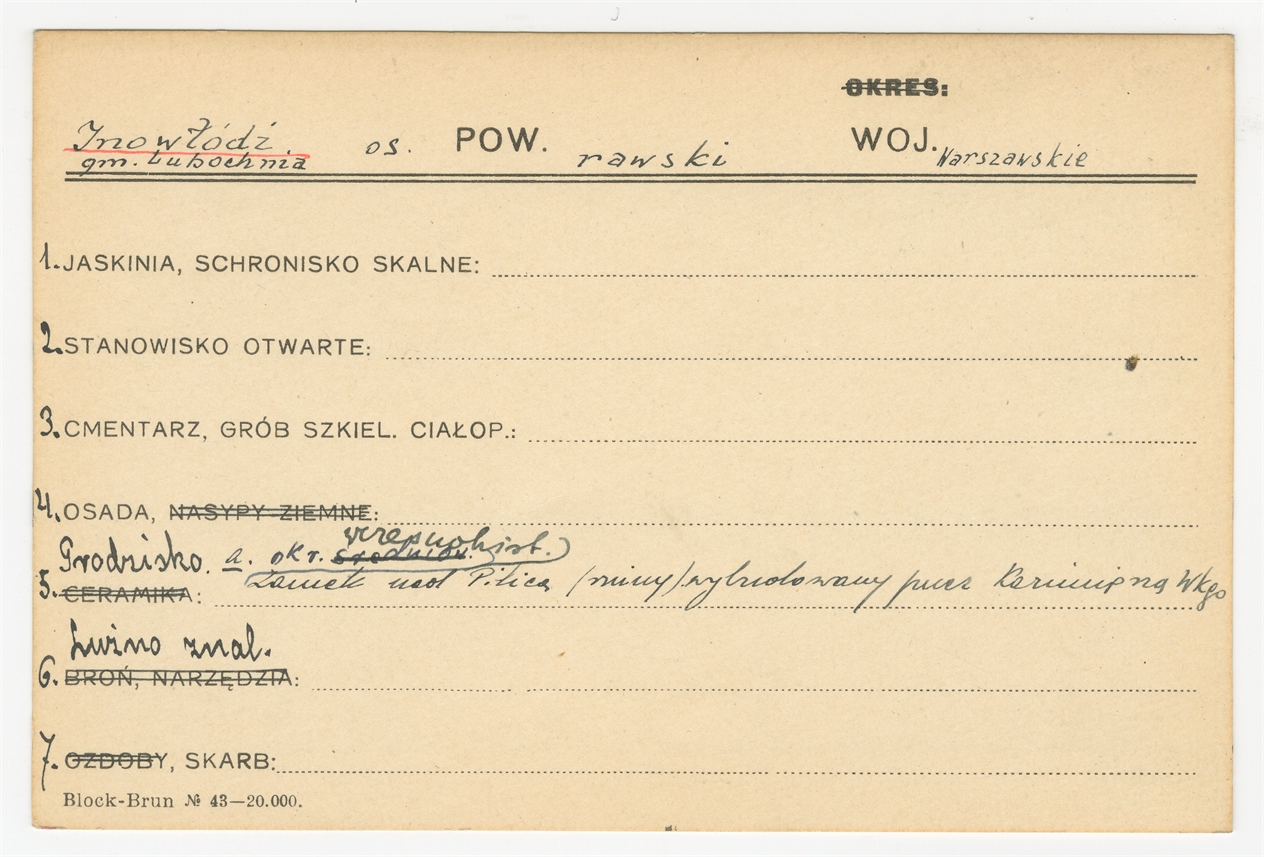 OKRES:
Inowłódź. os. POW. rawski WOJ. Warszawskie
gm. Lubochnia
1. JASKINIA, SCHRONISKO SKALNE:
2. STANOWISKO OTWARTE:
3. CMENTARZ, GRÓB SZKIEL. CIAŁOP.:
4. OSADA, NASYPY ZIEMNE:
wczesnohist.)
Grodzisko. a. okr. średniow.
Zamek nad Pilicą (ruiny) wybudowany przez Kazimierza Wkgo
5. CERAMIKA:
Luźno znal.
6. BROŃ, NARZĘDZIA:
7. OZDOBY, SKARB:
Block-Brun № 43—20.000.